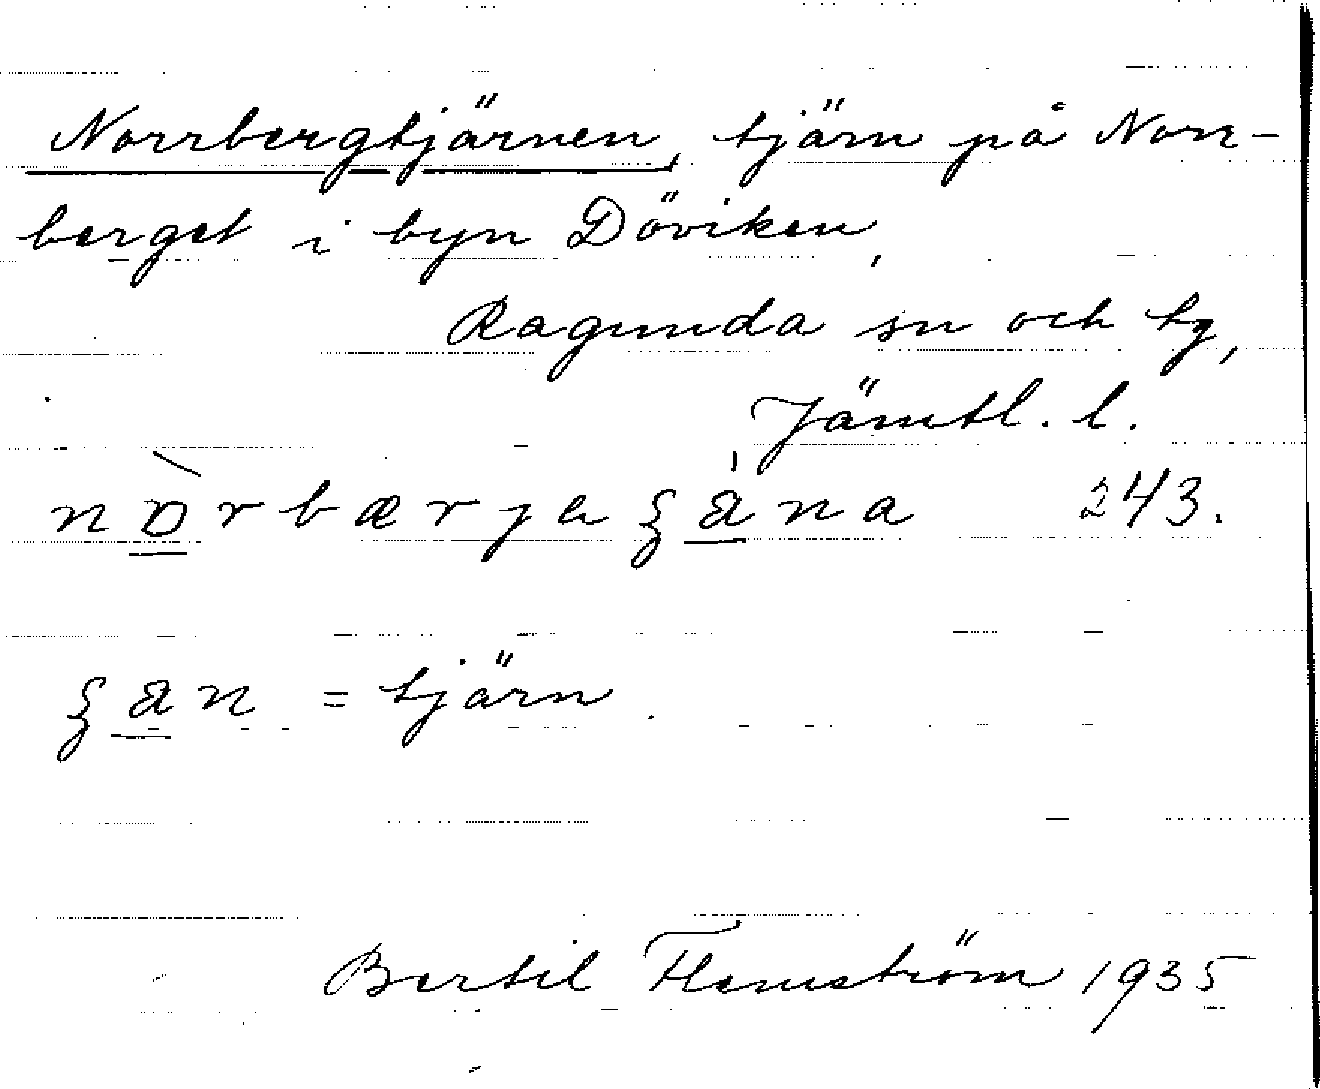 Norrbergtjärnen, tjärn på Norr-
berget i byn Döviken,
Ragunda sn och tg,
Jämtl. l.
243.
= tjärn.
Bertil Flemström 1935